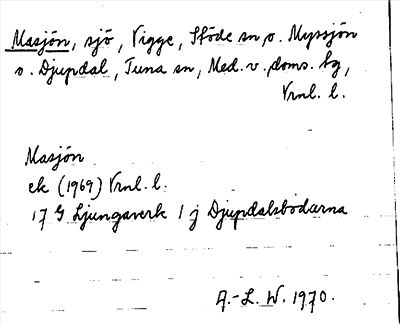 Masjön, sjö, Vigge, Stöde sn, o. Myssjön
o. Djupdal, Tuna sn, Med. v. doms. hg,
Vrnl. l.
Masjön
ek (1969) Vrnl. l.
17 G Ljungaverk 1 j Djupdalsbodarna
A.-L. W. 1970.